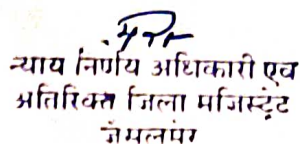 न्याय निर्णय अधिकारी एव
अतिरिक्त जिला मजिस्ट्रेट